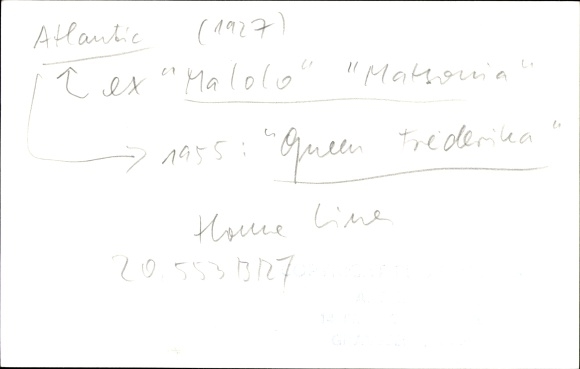 Atlantic (1927)
ex "Malolo" "Matsonia"
1955: "Queen Frederika"
Home Lines
20.553 BRT